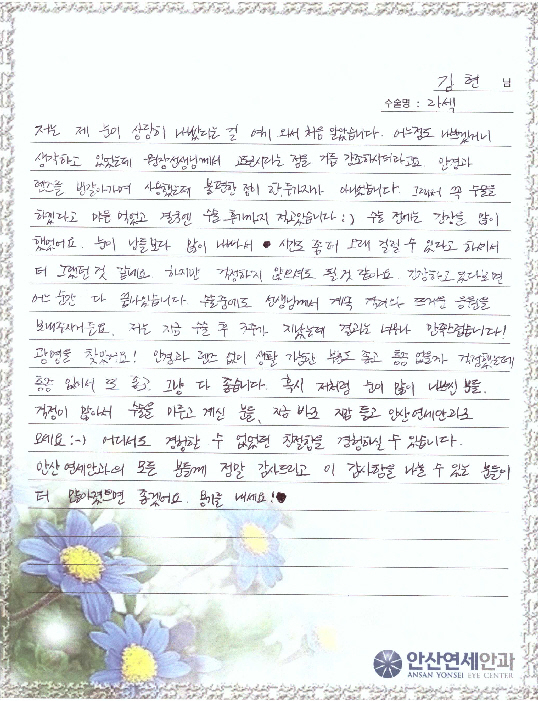 김현 님
수술명 : 라섹
저는 제 눈이 상당히 나빴다는 걸 여기 와서 처음 알았습니다. 어느정도 나쁘겠거니
생각하고 있었는데 원장선생님께서 고도근시라는 점을 거듭 강조하시더라고요. 안경과
렌즈를 번갈아가며 사용했는데 불편한 점이 한두가지가 아니었습니다. 그래서 꼭 수술을
하겠다고 마음 먹었고 결국엔 수술 후기까지 적고있습니다 :) 수술 전에는 긴장을 많이
했었어요. 눈이 남들보다 많이 나빠서 시간도 좀 더 오래 걸릴 수 있다고 하셔서
더 그랬던 것 같네요. 하지만 걱정하지 않으셔도 될 것 같아요. 긴장하고 있다보면
어느 순간 다 끝나있습니다. 수술중에도 선생님께서 계속 격려와 뜨거운 응원을
보내주시거든요. 저는 지금 수술 후 3주가 지났는데 결과는 너무나 만족스럽습니다!
광명을 찾았어요! 안경과 렌즈 없이 생활 가능한 부분도 좋고 통증 없을지 걱정했는데
통증 없어서 또 좋고 그냥 다 좋습니다. 혹시 저처럼 눈이 많이 나쁘신 분들,
걱정이 많아서 수술을 미루고 계신 분들, 지금 바로 지갑 들고 안산연세안과로
오세요 :-) 어디서도 경험할 수 없었던 친절함을 경험하실 수 있습니다.
안산연세안과의 모든 분들께 정말 감사드리고 이 감사함을 나눌 수 있는 분들이
더 많아졌으면 좋겠어요. 용기를 내세요!
안산연세안과
ANSAN YONSEI EYE CENTER